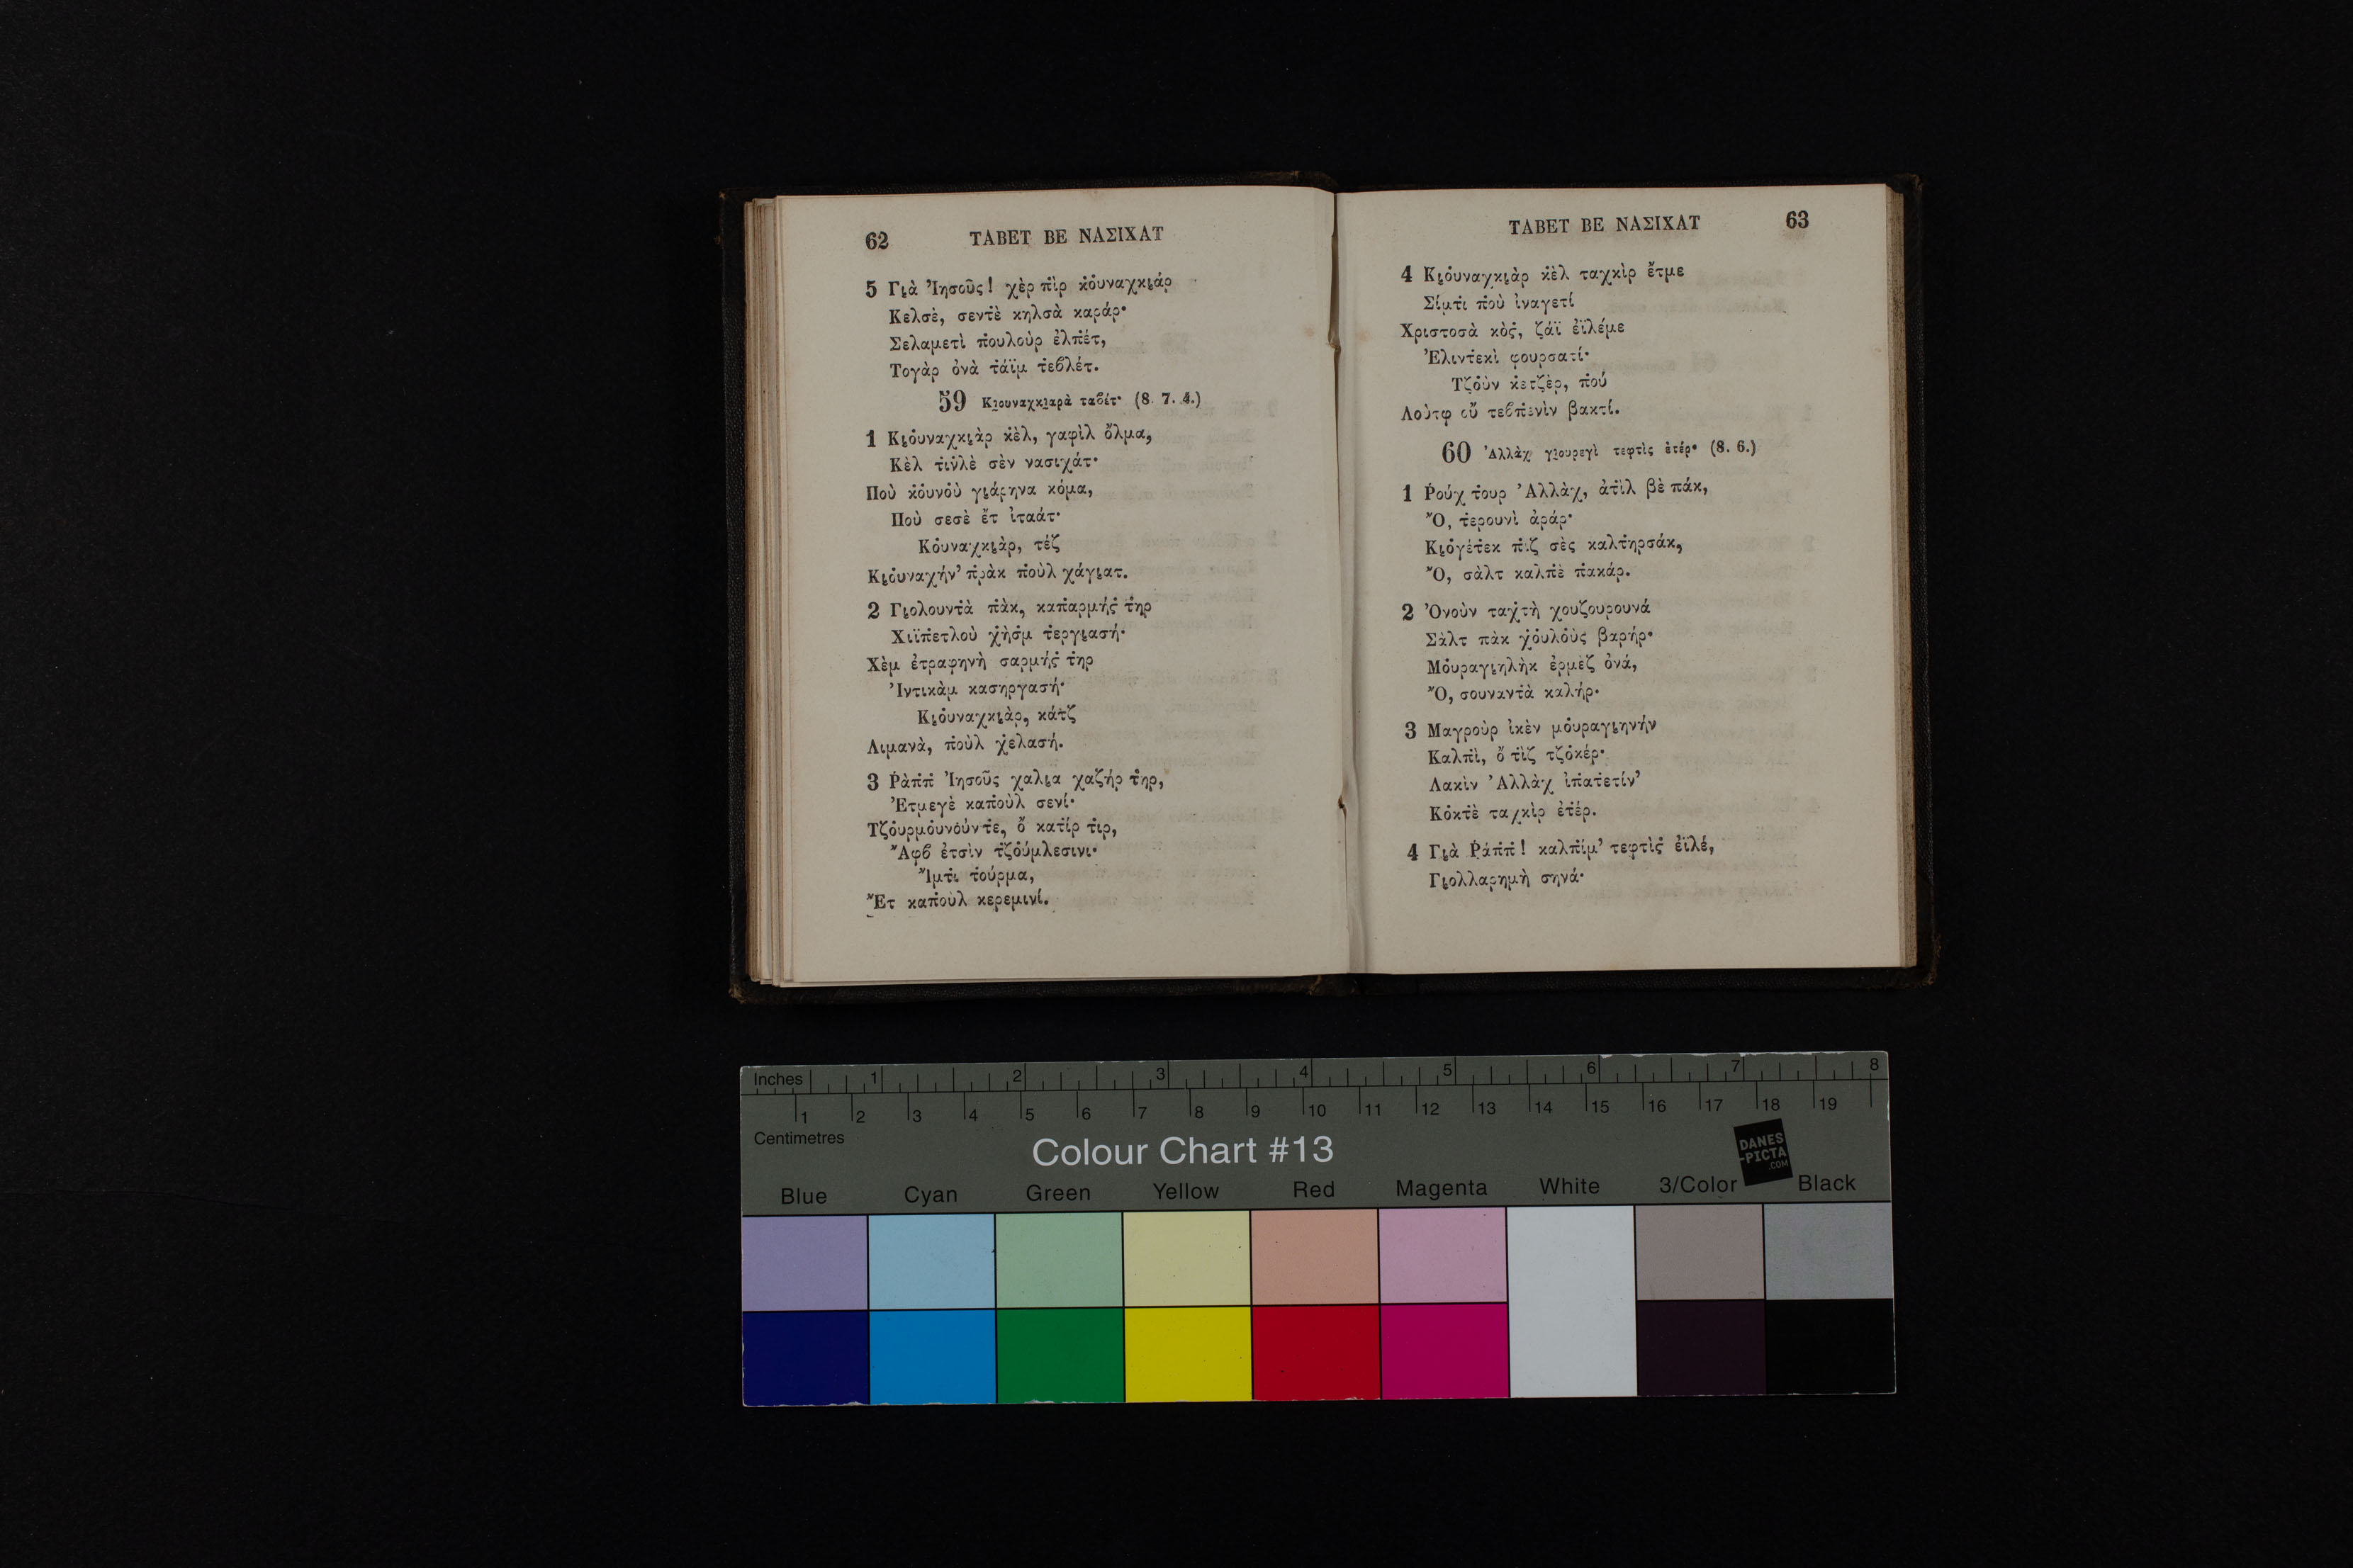 62 ΤΑΒΕΤ ΒΕ ΝΑΣΙΧΑΤ
5 Γι̲ὰ Ἰησοῦς! χὲρ π̇ὶρ κ̇ὀυναχκι̲άρ
Κελσὲ, σεντ̇ὲ κηλσὰ καράρ·
Σελαμετὶ π̇ουλοὺρ ἐλπ̇έτ,
Τογὰρ ὀνὰ τ̇άϊμ τ̇εϐλέτ.
59 Κι̲ουναχκι̲αρὰ ταϐέτ· (8. 7. 4.)
1 Κι̲ὀυναχκι̲ὰρ κ̇ὲλ, γαφὶλ ὄλμα,
Κὲλ τ̇ιν̇λὲ σὲν νασιχάτ·
Ποὺ κ̇ὀυνὀὺ γι̲άρηνα κόμα,
Ποὺ σεσὲ ἔτ ἰταάτ·
Κὀυναχκι̲ὰρ, τέζ
Κι̲ὀυναχήν' π̇ρὰκ π̇οὺλ χάγι̲ατ.
2 Γι̲ολουντ̇ὰ π̇ὰκ, καπ̇αρμής̇ τ̇ηρ
Χιϊπ̇ετλοὺ χ̇ὴσ̇μ τ̇εργι̲ασή·
Χὲμ ἐτραφηνὴ σαρμής̇ τ̇ηρ
Ἰντικὰμ κασηργασή·
Κι̲ὀυναχκι̲ὰρ, κάτζ
Λιμανὰ, π̇οὺλ χ̇ελασή.
3 Ῥὰπ̇π̇ Ἰησοῦς χαλι̲α χαζήρ τ̇ηρ,
Ἐτμεγὲ καπ̇οὺλ σενί·
Τζὀυρμὀυνὀύντ̇ε, ὄ κατ̇ίρ τ̇ιρ,
Ἄφϐ ἐτσὶν τ̇ζὀύμλεσινι·
Ἴμτ̇ι τ̇ούρμα,
Ἔτ καπ̇οὺλ κερεμινί.
ΤΑΒΕΤ ΒΕ ΝΑΣΙΧΑΤ 63
4 Κι̲ὀυναχκι̲ὰρ κ̇ὲλ ταχκὶρ ἔτμε
Σίμτ̇ι π̇οὺ ἰναγετί
Χριστοσὰ κὸς̇, ζάϊ ἐϊλέμε
Ἐλιντ̇εκὶ φουρσατί·
Τζὀὺν κ̇ετζὲρ, π̇ού
Λοὺτφ οὔ τεϐπ̇ενὶν βακτί.
60 Ἀλλὰχ γι̲ουρεγὶ τεφτὶς ἐτέρ· (8. 6.)
1 Ῥούχ τ̇ουρ Ἀλλὰχ, ἀτ̇ὶλ βὲ πάκ,
Ὄ, τ̇ερουνὶ ἀράρ·
Κι̲ὀγέτ̇εκ π̇ὶζ σὲς καλτ̇ηρσάκ,
Ὄ, σὰλτ καλπ̇ὲ π̇ακάρ.
2 Ὀνοὺν ταχ̇τὴ χουζουρουνά
Σὰλτ πὰκ χ̇ὀυλὀὺς βαρήρ·
Μὀυραγι̲ηλὴκ ἐρμὲζ ὀνά,
Ὄ, σουναντ̇ὰ καλήρ·
3 Μαγροὺρ ἰκὲν μὀυραγι̲ηνήν
Καλπ̇ὶ, ὄ τ̇ὶζ τζὀκέρ·
Λακὶν Ἀλλὰχ ἰπ̇ατ̇ετίν'
Κὀκτ̇ὲ ταχκὶρ ἐτ̇έρ.
4 Γι̲ὰ Ῥάπ̇π̇! καλπ̇ίμ' τεφτὶς̇ ἐϊλέ,
Γι̲ολλαρημὴ σηνά·
Inches 1 2 3 4 5 6 7 8
1 2 3 4 5 6 7 8 9 10 11 12 13 14 15 16 17 18 19
Centimetres
Colour Chart #13
DANES
-PICTA
.COM
Blue Cyan Green Yellow Red Magenta White 3/Color Black